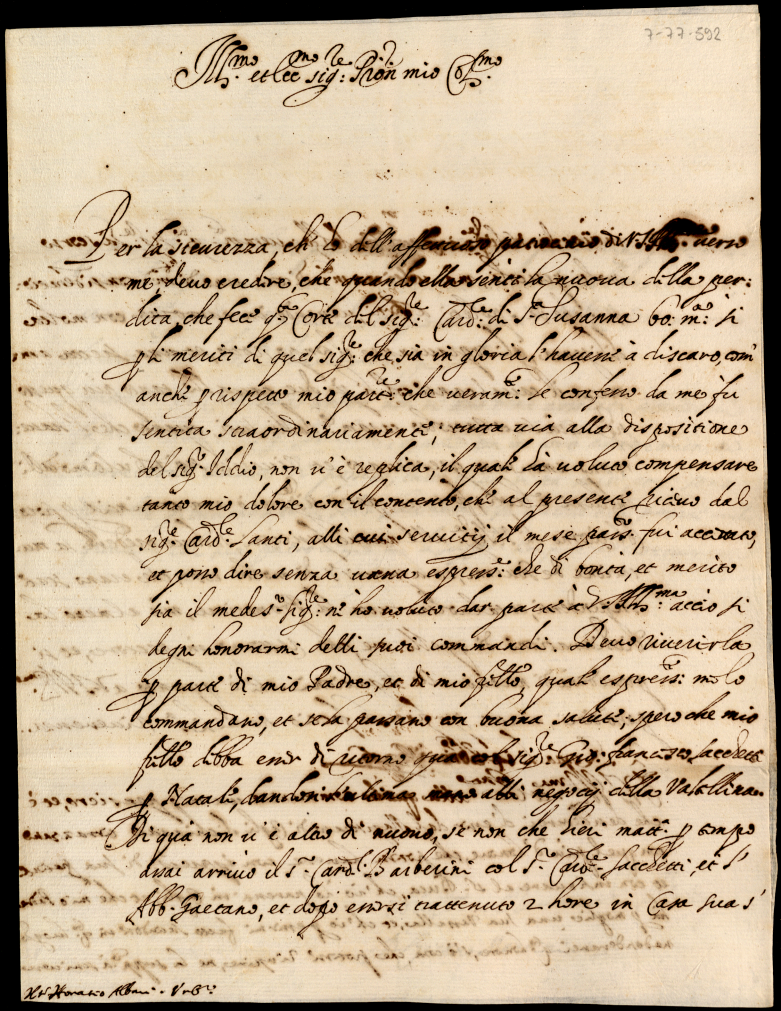 7-77-592
Ill.mo et Ecc.mo sig.re Pron mio Col.mo
Per la sicurezza, che ho dell'affettuoso patrocinio di V.S. Ill. verso
me devo credere, che quando ella sentì la nuova della per:
dita, che fece q.ta Corte del sig.re Card.le di S.ta Susanna bo: me: si
p li meriti di quel sig.re che sia in gloria l'havere à discaro, com'
anche p rispetto mio part.re che veram.te le confesso da me fu
sentita straordinariamente; tutta via alla dispositione
del sig.r Iddio, non vi è replica, il quale hà voluto compensare
tanto mio dolore con il contento, che al presente ricevo dal
sig.re Card.le Lanti, alli cui servitij il mese pass.o fui accettato,
et posso dire senza vana espress.e che di bontà, et merito
sia il medes.o sig.re n'ho voluto dar parte à V.S. Ill.ma acciò si
degni honorarmi delli suoi commandi. Devo riverirla
p parte di mio Padre, et di mio fr̃llo, quali espress.te me lo
commandano, et se la passano con buona salute; spero che mio
fr̃llo debba esser di ritorno quà col sig.re Gio: francesco Sacchetti
p Natale, dandosi ultima mano alli negocij della Valtellina.
Di quà non vi è altro di nuovo, se non che hieri matt.a p tempo
assai arrivò il S.r Card.l Barberini col S.r Card.le Sacchetti, et l'
Abb.e Gaetano, et dopo essersi trattenuto 2 hore in Casa sua s'
Horatio Albani. Urb.o